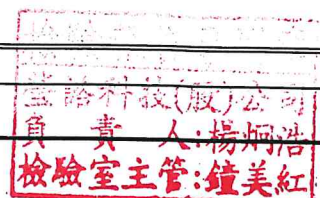 科技(股)公司
負責人:楊炯浩
檢驗室主管:鐘美紅